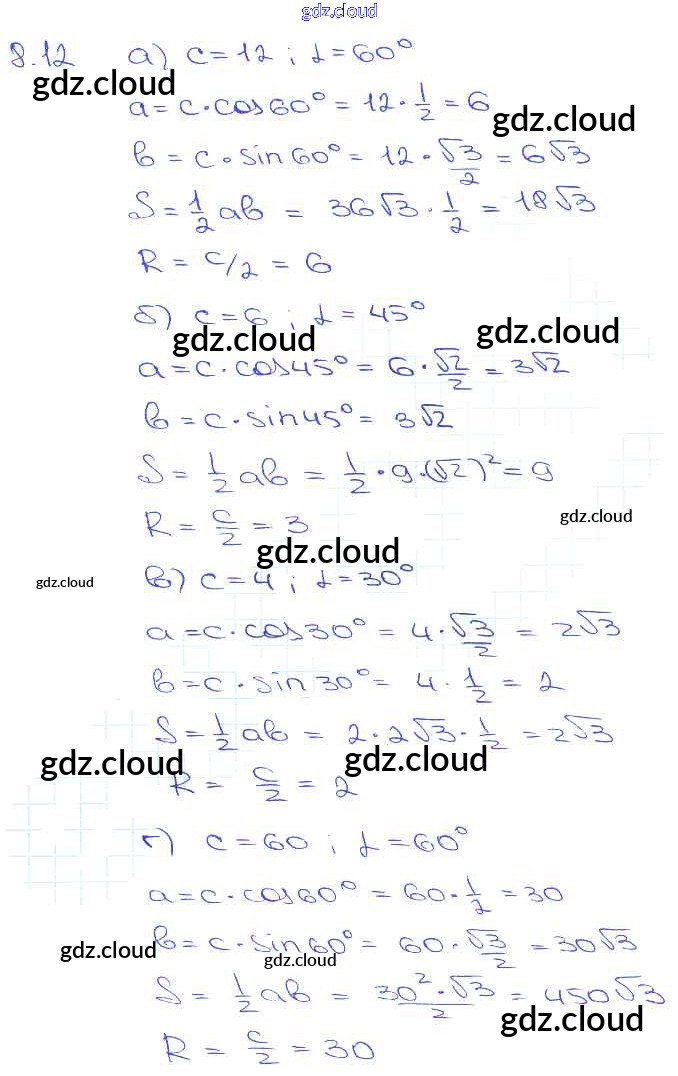 gdz.cloud
8.12 а) c=12 ; α=60°
gdz.cloud
a=c·cos60°=12·1/2=6
gdz.cloud
b=c·sin60°=12·√3/2=6√3
S=1/2ab=36√3·1/2=18√3
R=c/2=6
б) c=6 ; α=45°
gdz.cloud gdz.cloud
a=c·cos45°=6·√2/2=3√2
b=c·sin45°=3√2
S=1/2ab=1/2·9·(√2)²=9
R=c/2=3
gdz.cloud
gdz.cloud
в) c=4 ; α=30°
gdz.cloud
a=c·cos30°=4·√3/2=2√3
b=c·sin30°=4·1/2=2
S=1/2ab=2·2√3·1/2=2√3
gdz.cloud gdz.cloud
R=c/2=2
г) c=60 ; α=60°
a=c·cos60°=60·1/2=30
b=c·sin60°=60·√3/2=30√3
gdz.cloud
gdz.cloud
S=1/2ab=30²·√3/2=450√3
gdz.cloud
R=c/2=30